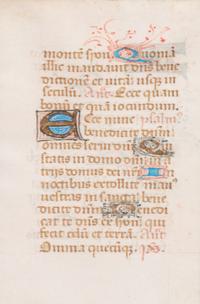 montem syon. Quoniam
illic mandauit dñs bene
dictionem et vitã usq̃ in
seculũ. Añt. Ecce quam
bonũ et quã iocundum.
Ecce nunc psalm9
benedicite dñm
omnes serui dñi Qui
statis in domo dñi in a
triis domus dei nr̃i In
noctibus extollite man9
vestras in sancta bene
dicite dñm Benedi
cat te dñs ex syon qui
fecit celũ et terrã. Añt.
Omnia quecũq̃. p̃s.